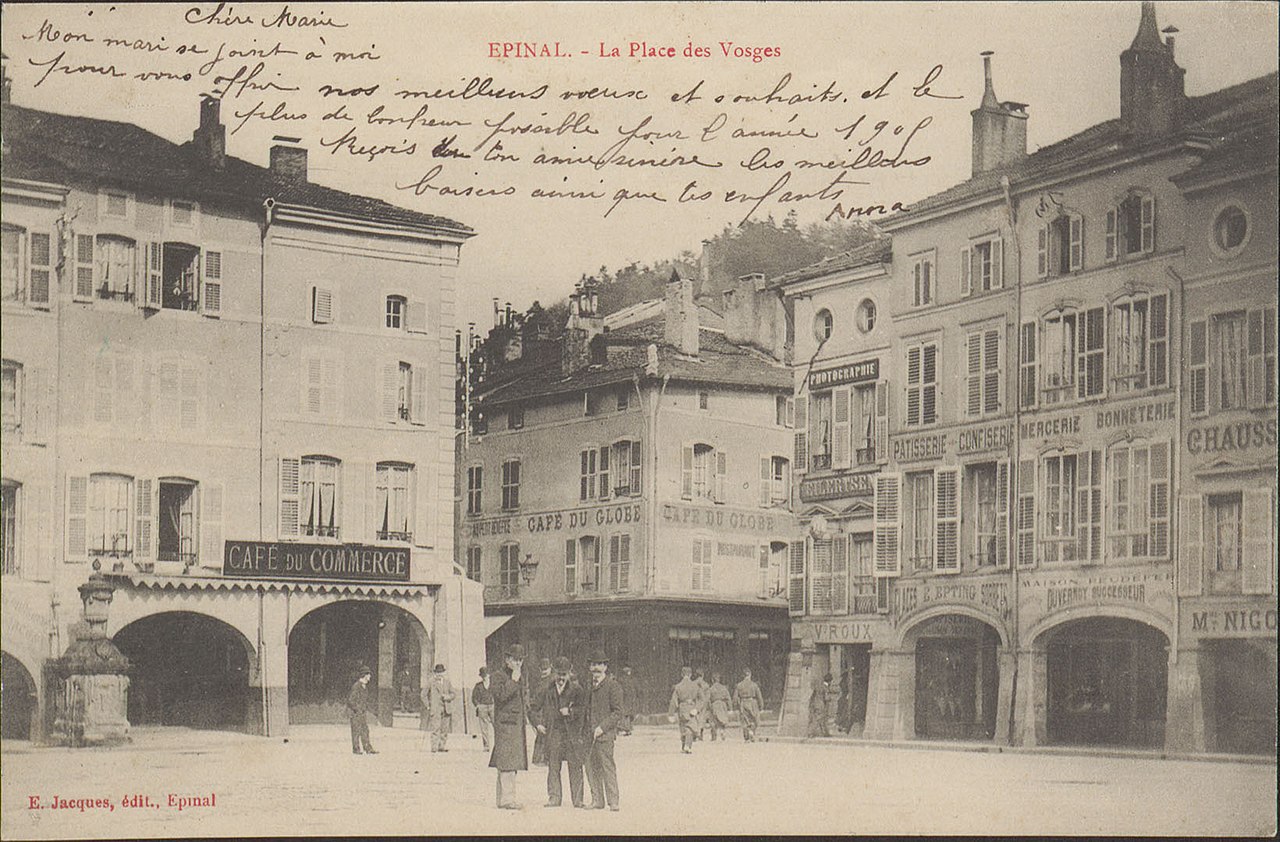 Chère Marie
Mon mari se joint à moi
pour vous offrir nos meilleurs voeux et souhaits. et le
plus de bonheur possible pour l'année
Reçois ton amie sincère les meilleurs
baisers ainsi que tes enfants
EPINAL. - La Place des Vosges
PHOTOGRAPHIE
PATISSERIE CONFISERIE
MERCERIE BONNETERIE
CHAUSS
CAFÉ DU GLOBE
CAFÉ DU GLOBE
RESTAURANT
CAFÉ DU COMMERCE
E. EPTING
DUVERNOY SUCCESSEUR
V. ROUX
MN NIGO
E. Jacques, édit., Epinal